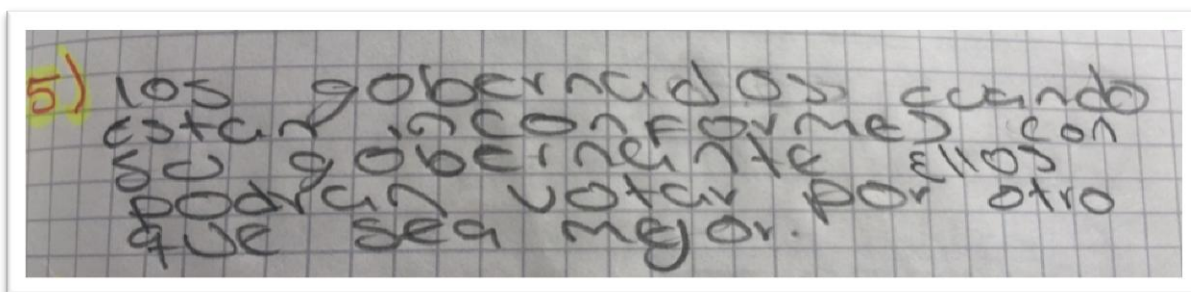 5) los gobernados cuando
estan inconformes con
su gobernante ellos
podran votar por otro
que sea mejor.